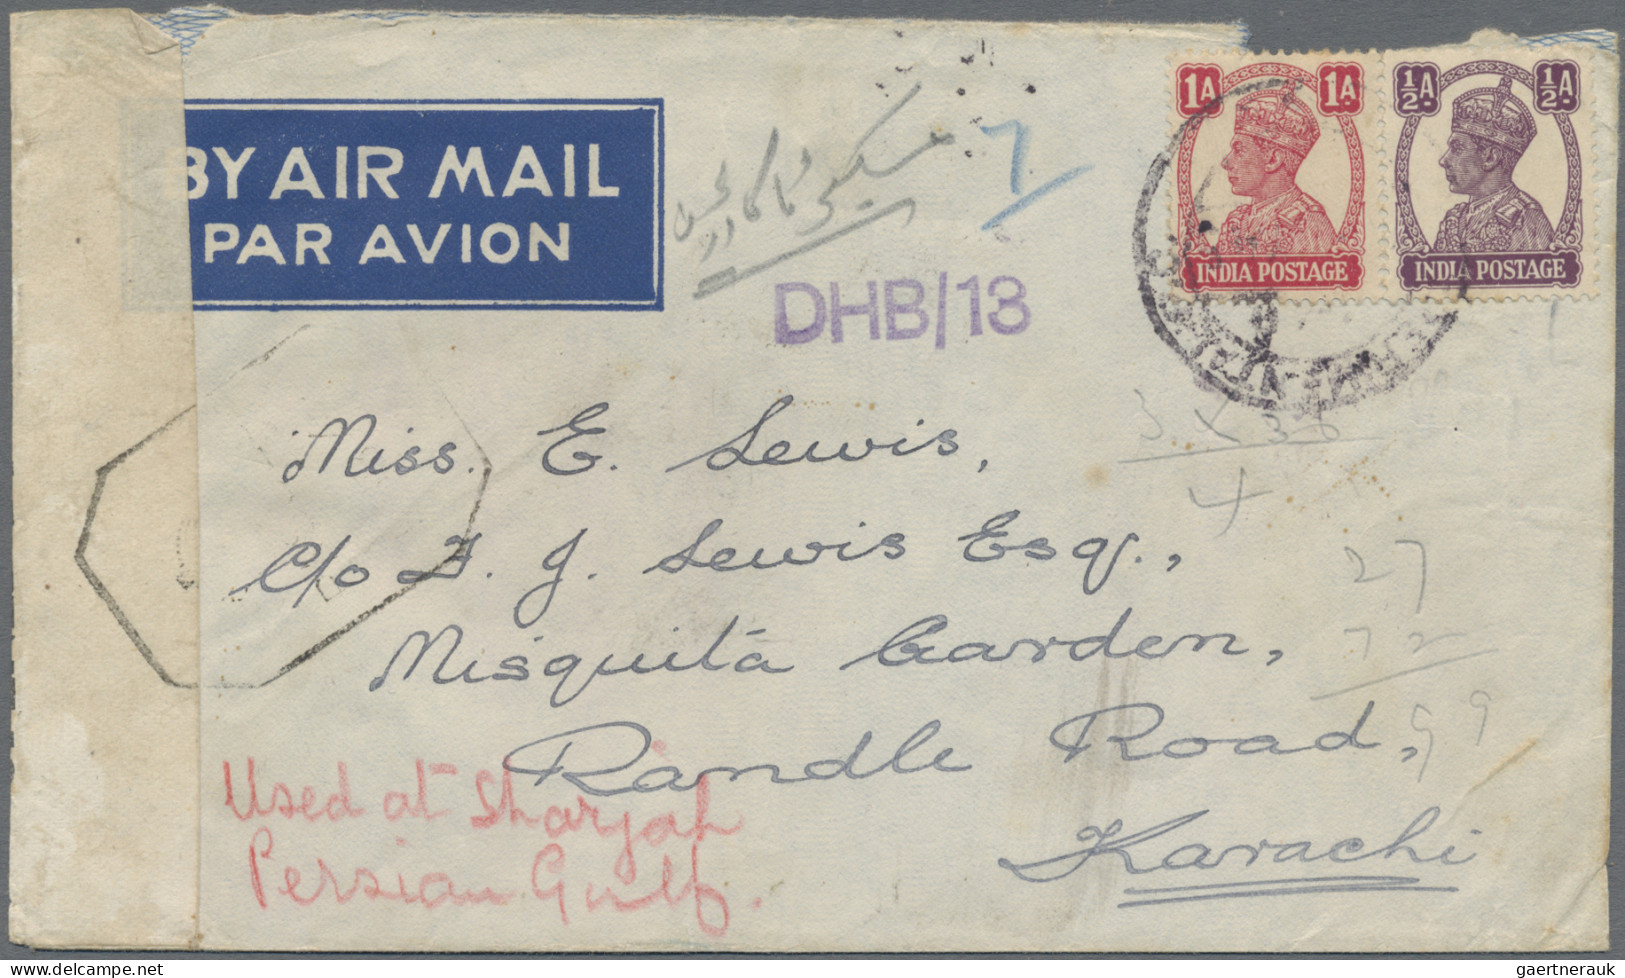 BY AIR MAIL
PAR AVION
7
DHB/13
1A 1A
INDIA POSTAGE
½A ½A
INDIA POSTAGE
Miss. E. Lewis,
c/o F. J. Lewis Esq.,
Misquita Garden,
Randle Road,
Karachi
3 x 36
4
27
72
99
Used at Sharjah
Persian Gulf.
gaertnerauk